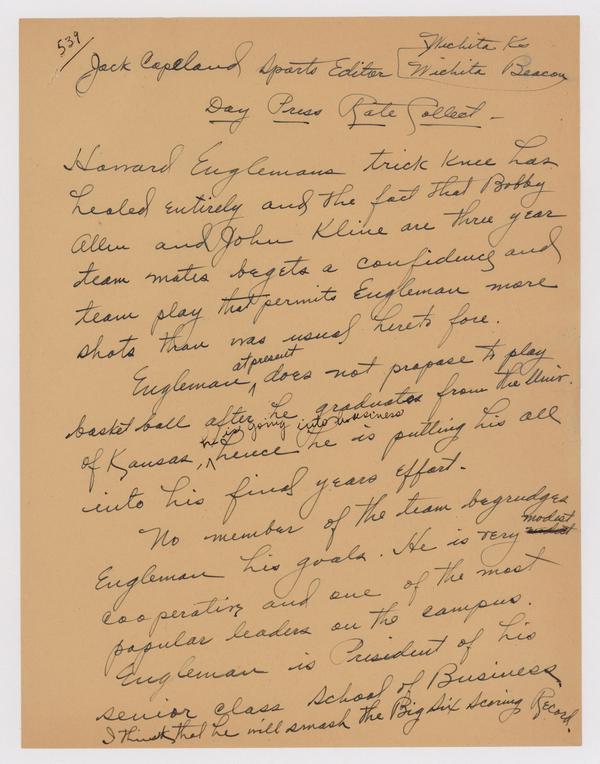 539
Wichita Ks
Jack Copeland Sports Editor Wichita Beacon
Day Press Rate Collect -
Howard Englemans trick knee has
healed entirely and the fact that Bobby
Allen and John Kline are three year
team mates begets a confidence and
team play that permits Engleman more
shots than was usual hereto fore.
at present
Engleman ^ does not propose to play
basket ball after he graduates from the Univ.
is going into business
of Kansas, ^ hence he is putting his all
into his final years effort.
No member of the team begrudges
modest
Engleman his goals. He is very
cooperative and one of the most
popular leaders on the campus.
Engleman is President of his
senior class School of Business
I think that he will smash the Big Six Scoring Record.